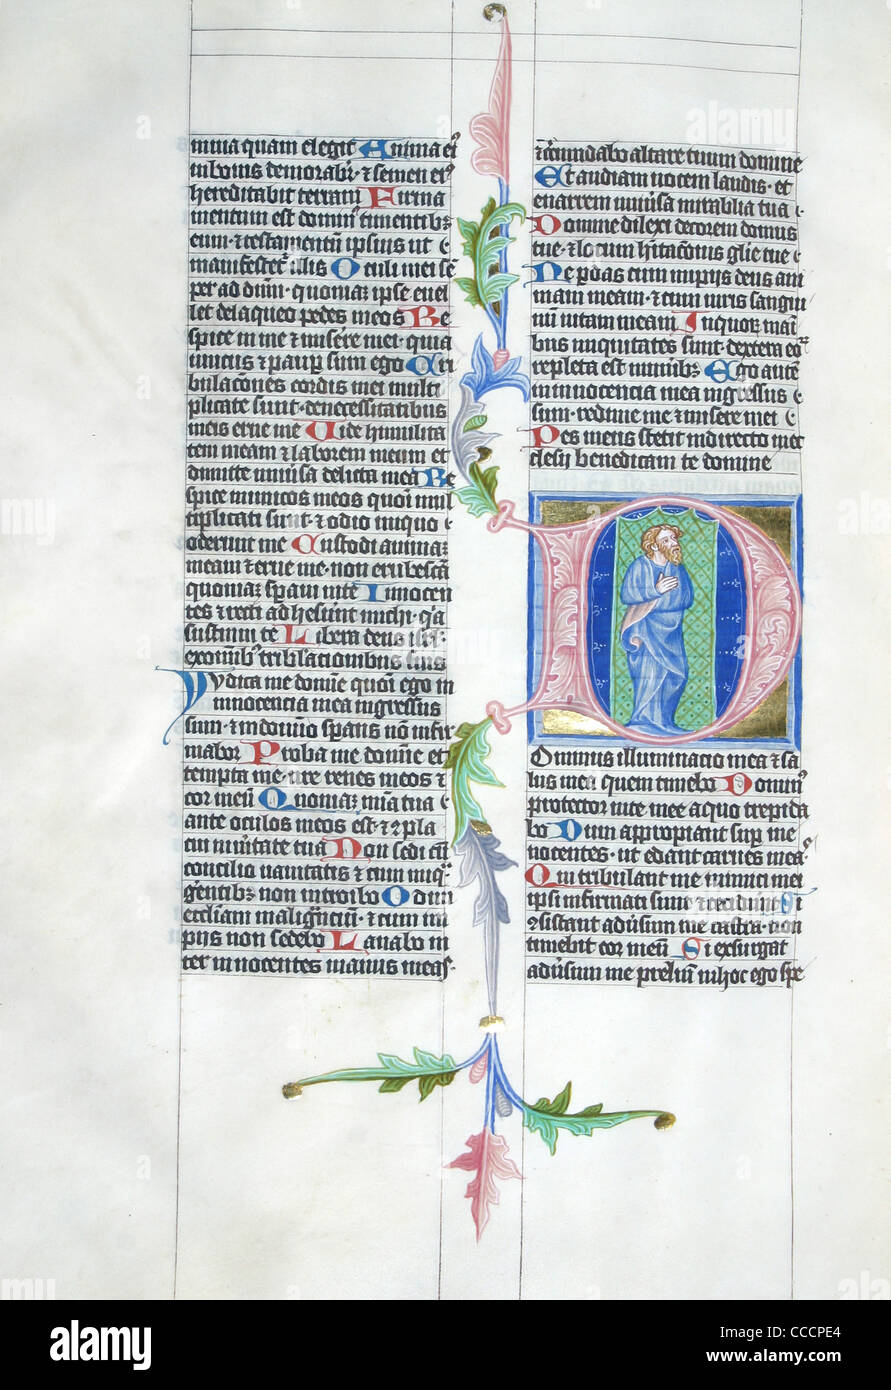 mina quam elegit Anima eiꝰ
in bonis demorabr̄· ⁊ semen eiꝰ
hereditabit terram Firma
mentum est domin⁹ timentibꝫ
eum· ⁊ testamentū ipsius ut
manifestet᷑ illis Oculi mei sē
per ad dn̄m· quoniaꝫ ipse euel
let de laqueo pedes meos Re
spice in me ⁊ misere mei· quia
unicus ⁊ paup sum ego Tri
bulacōnes cordis mei multi
plicate sunt· de necessitatibus
meis erue me Vide humilita
tem meam ⁊ laborem meum et
dimitte uniūsa delicta mea Re
spice inimicos meos quoūi mul
tiplicati sunt· ⁊ odio iniquo
oderunt me Custodi animaꝫ
meam ⁊ erue me· non erubescā
quoniaꝫ spaui in te Innocen
tes ⁊ recti adheserūt michi· q̇a
sustinui te Libera deus isrl·
ex omībꝫ tribulationibus suis
Iudica me domīe quoū ego in
innocencia mea ingressus
sum· ⁊ in domīo sperans nō infir
mabor Proba me domīe et
tempta me· ure renes meos ⁊
cor meū Quoniaꝫ mīa tua
ante oculos meos est· ⁊ 9pla
cui in ūitate tua Non sedi cū
concilio uanitatis ⁊ cum iniqᷓ
gentibꝫ non introibo Odiui
eccliam malignciū· ⁊ cum im
piis non sedebo Lauabo in
ter innocentes manus meas·
⁊ ċcundabo altare tuum domine
Et audiam uocem laudis· et
enarrem uniūsa mirabilia tua
Domine dilexi decorem domus
tue· ⁊ locum hitacōnis glīe tue
Ne pdas cum impiis deus ani
mam meam· ⁊ cum uiris sangui
nū uitam meam In quoꝝ mani
bus iniquitates sunt· dextera eoꝝ
repleta est munibꝫ Ego autē
in innocencia mea ingressus
sum· redime me ⁊ miserere mei
Pes meus stetit in directo in ec
clesiis benedicam te domine
Dominus illuminacio mea ⁊ sa
lus mea quem timebo Domin⁹
protector uite mee a quo trepida
bo Dum appropiant sup me
nocentes· ut edant carnes meaˢ
Qui tribulant me inimici mei
ipsi infirmati sunt ⁊ ceciderunt Si
9sistant adūsum me castra· non
timebit cor meū Si exsurgat
adūsum me preliū in hoc ego spe
alamy
Image ID: CCCPE4
www.alamy.com